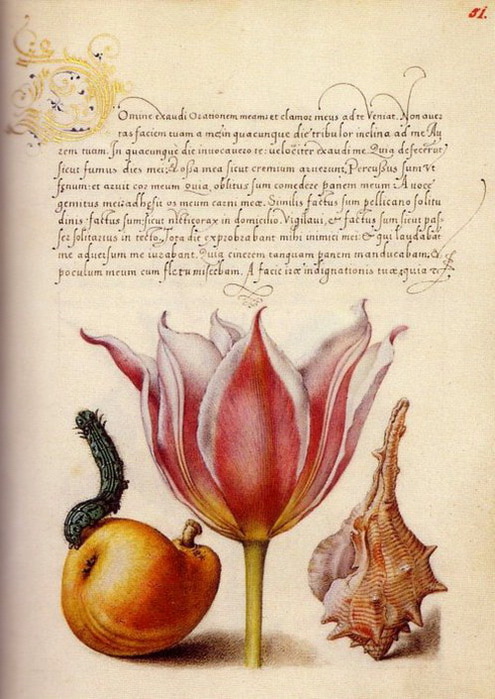 51.
Domine exaudi Orationem meam: et clamor meus ad te Veniat. Non auer
tas faciem tuam a me: in quacunque die tribulor inclina ad me Au
rem tuam. In quacunque die invocavero te: velociter exaudi me. Quia defecerūt
sicut fumus dies mei: & ossa mea sicut cremium aruerunt. Percussus sum vt
fęnum: et aruit cor meum Quia, oblitus sum comedere panem meum. A voce
gemitus mei: adhęsit os meum carni meæ. Similis factus sum pellicano solitu
dinis: factus sum sicut nicticorax in domicilio. Vigilaui, & factus sum sicut pas,
ser solitarius in tecto. Tota die exprobrabant mihi inimici mei: & qui laudabāt
me aduersum me iurabant. Quia cinerem tanquam panem manducabam, &
poculum meum cum fletu miscebam. A facie iræ indignationis tuæ: quia &c